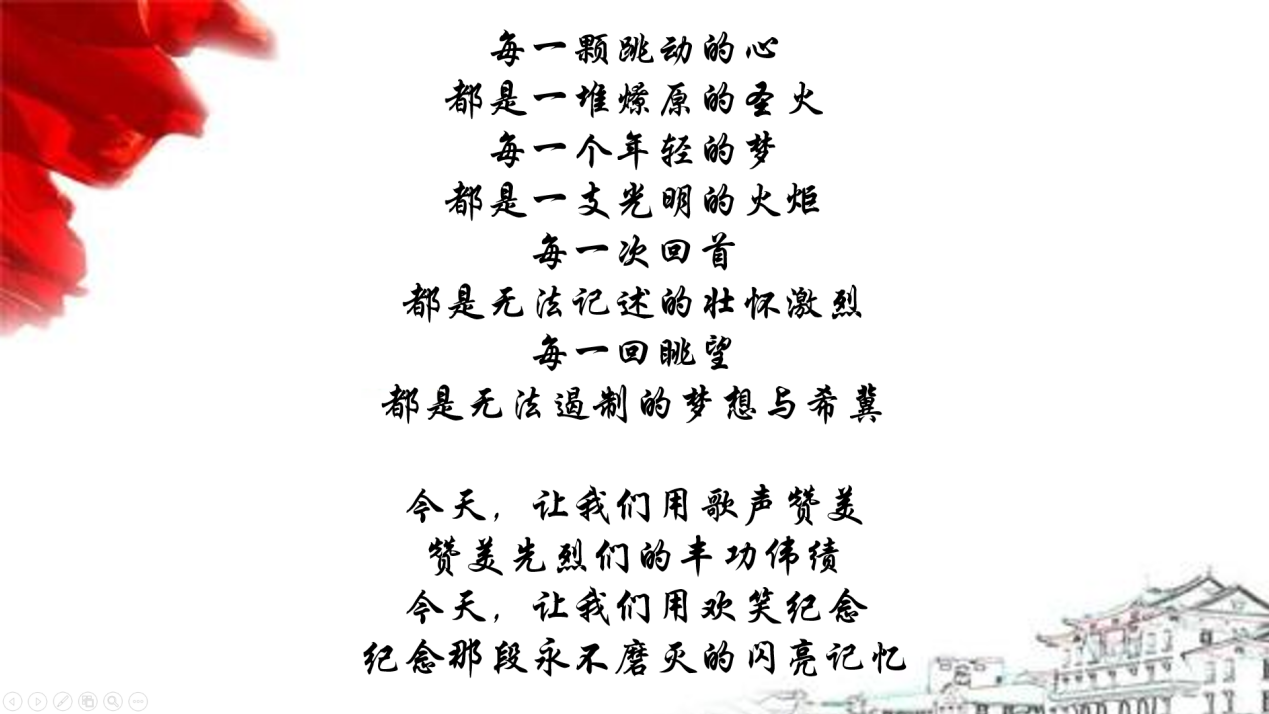 每一颗跳动的心
都是一堆燎原的圣火
每一个年轻的梦
都是一支光明的火炬
每一次回首
都是无法记述的壮怀激烈
每一回眺望
都是无法遏制的梦想与希冀
今天，让我们用歌声赞美
赞美先烈们的丰功伟绩
今天，让我们用欢笑纪念
纪念那段永不磨灭的闪亮记忆